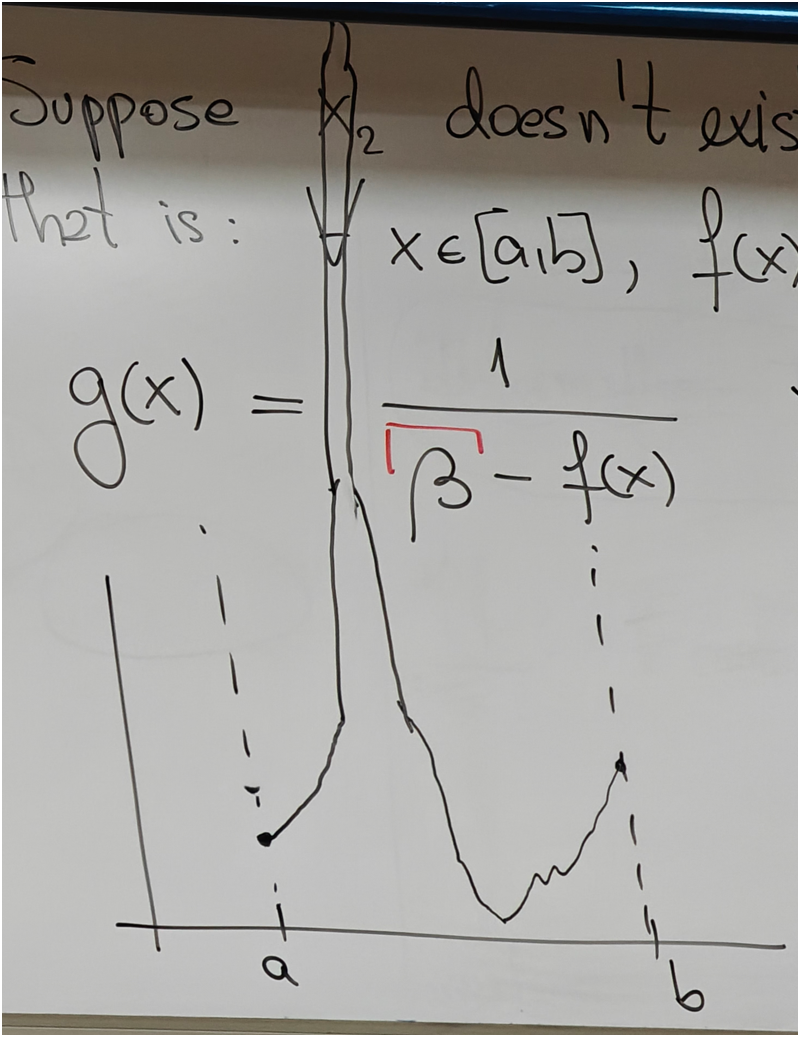 Suppose x₂ doesn't exis
that is: ∀ x∈[a,b], f(x)
g(x) = 1 / (β - f(x))
a
b